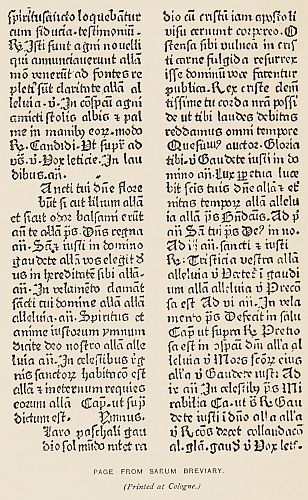 spiritusancto loquebãtur
cum fiducia. testimoniũ.
R̃. Isti sunt agni nouelli
qui annunciauerunt allã
mõ venerũt ad fontes re
pleti sũt claritate allã al
leluia. v̉. In cõspcũ agni
amicti stolis albis & pal
me in manibȝ eorȝ. modo
R̃. Candidi. Ut supᷓ ad
vs̃. v̉. Vox leticie. In lau
dibus. añ.
Ancti tui dñe flore
bũt sicut lilium allã
et sicut odor balsami erũt
añ te allã ps̃. Dñs regna
añ. Sctȝ iusti in domino
gaudete allã vos elegit d̃
us in hereditatẽ sibi allã.
añ. In velamẽto clamãt
sãcti tui domine allã allã
alleluia. añ. Spiritus et
anime iustorum ymnum
dicite deo nostro allã alle
luia añ. In celestibus re
gnis sanctorȝ habitatio est
allã & ineternum requies
eorum allã Cap. ut supᷓ
dictum est. Ymnus.
Claro paschali gau
dio sol mũdo nitet ra
dio cũ cristũ iam apostoli
visu cernunt corporeo. O
stensa sibi vulnera in cris
ti carne fulgida resurrex
isse dominũ voce fatentur
publica. Rex criste clemẽ
tissime tu corda nrã possi
de ut tibi laudes debitas
reddamus omni tempore
Quesumȝ auctor. Gloria
tibi. v̉ Gaudete iusti in do
mino añ. Lux ppetua luce
bit scis tuis dñe allã & et
nitas temporȝ allã allelu
ia allã
añ Sãcti tui
Ad añ. sancti & iusti
R̃. Tristicia vestra allã
alleluia v̉ Vertet̃ ĩ gaudi
um allã alleluia v̉ Precio
sa est Ad vi añ. In vela
mento ps̃ Defecit in salu
Cap ut supra R̃. Precio
sa est in cõspcũ dñi allã al
leluia v̉ Mors scõrȝ eius
allã v̉ Gaudete iusti. Ad
ix añ In celestibȝ ps̃ Mi
rabilia Ca. ut s̃ R̃ Gau
dete iusti ĩ dño allã allã
v̉ Rectos decet collaudatio
al. glã. gaud v̉ Vox letic.
PAGE FROM SARUM BREVIARY.
(Printed at Cologne.)